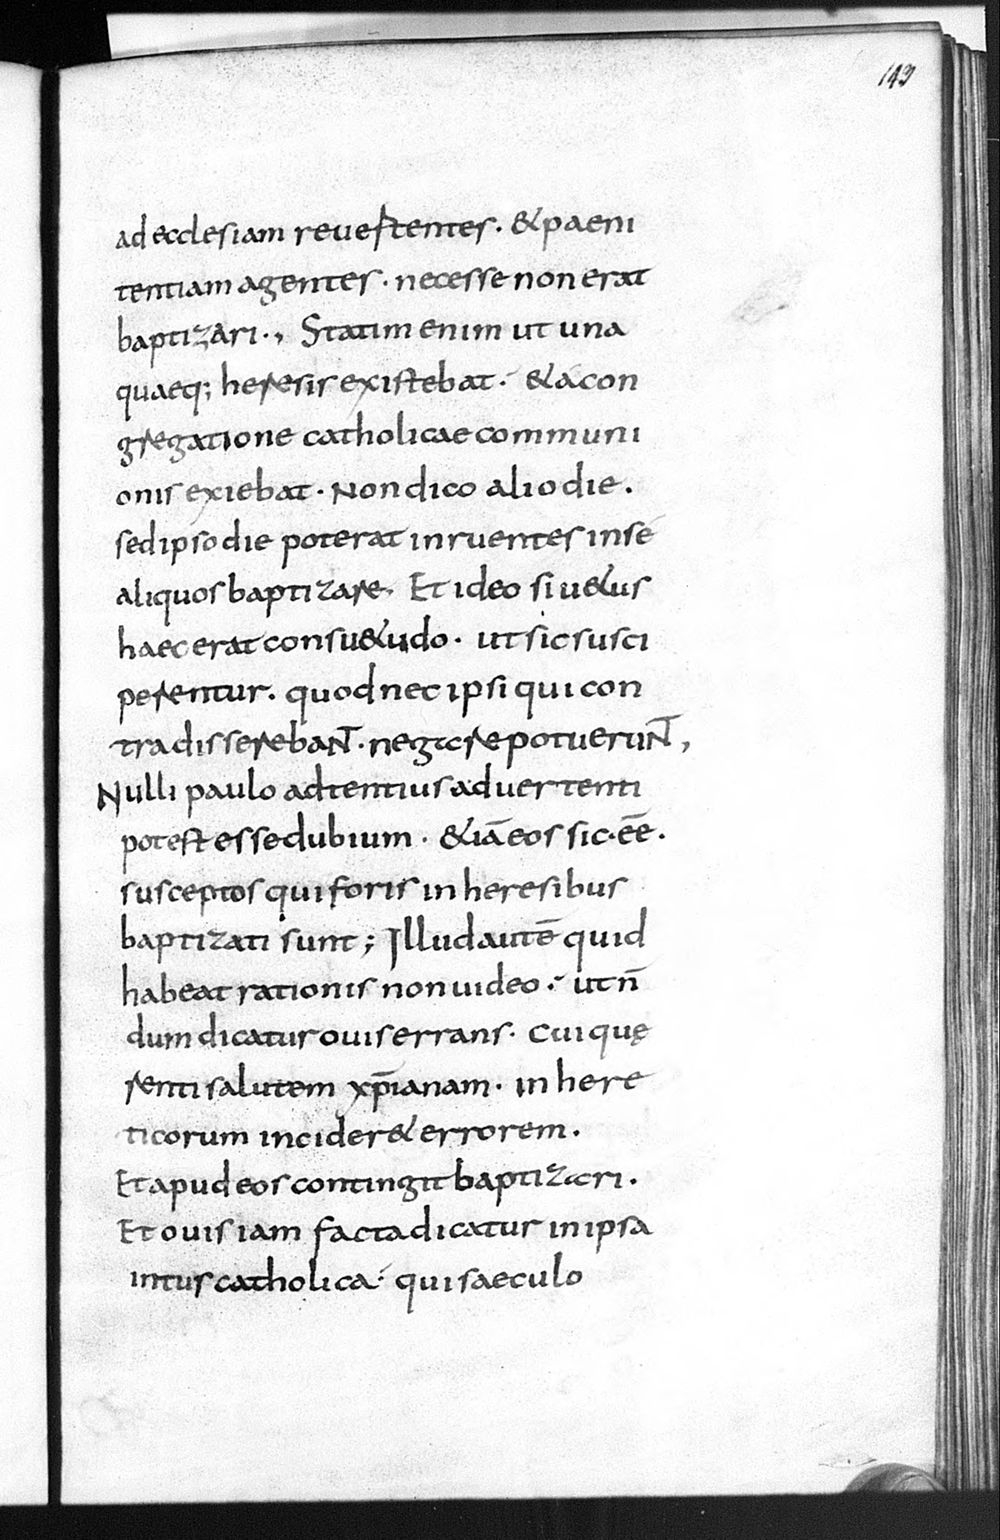 143
ad ecclesiam reuertentes. & paeni
tentiam agentes. necesse non erat
baptizari., Statim enim ut una
quaeq; heresis existebat. & a con
gregatione catholicae communi
onis exiebat. Non dico alio die.
sed ipso die poterat inruentes in se
aliquos baptizare. Et ideo si u&us
haec erat consu&udo. ut sic susci
perentur. quod nec ipsi qui con
tra disserebaNT. negare potueruNT,
Nulli paulo adtentius aduertenti
potest esse dubium. & iā eos sic. eē.
susceptos qui foris in heresibus
baptizati sunt; Illud autē quid
habeat rationis non uideo. ut n̄
dum dicatur ouis errans. Cui quę
renti salutem xp̄ianam. in here
ticorum incider& errorem.
Et apud eos contingit baptizari.
Et ouis iam facta dicatur in ipsa
intus catholica. qui saeculo